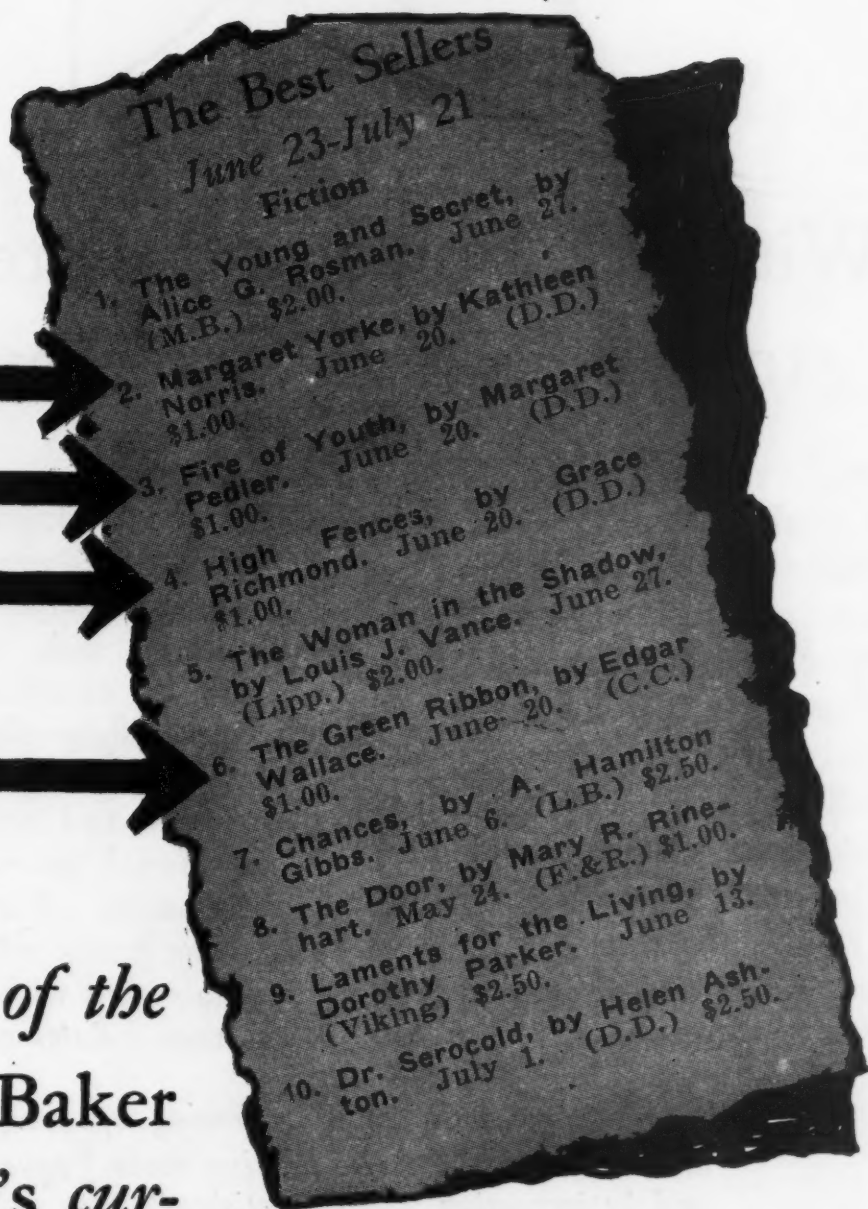 The Best Sellers
June 23-July 21
Fiction
1. The Young and Secret, by
Alice G. Rosman. June 27.
(M.B.) $2.00.
2. Margaret Yorke, by Kathleen
Norris. June 20. (D.D.)
$1.00.
3. Fire of Youth, by Margaret
Pedler. June 20. (D.D.)
$1.00.
4. High Fences, by Grace
Richmond. June 20. (D.D.)
$1.00.
5. The Woman in the Shadow,
by Louis J. Vance. June 27.
(Lipp.) $2.00.
6. The Green Ribbon, by Edgar
Wallace. June 20. (C.C.)
$1.00.
7. Chances, by A. Hamilton
Gibbs. June 6. (L.B.) $2.50.
8. The Door, by Mary R. Rine-
hart. May 24. (F.&R.) $1.00.
9. Laments for the Living, by
Dorothy Parker. June 13.
(Viking) $2.50.
10. Dr. Serocold, by Helen Ash-
ton. July 1. (D.D.) $2.50.
of the
Baker
's cur-